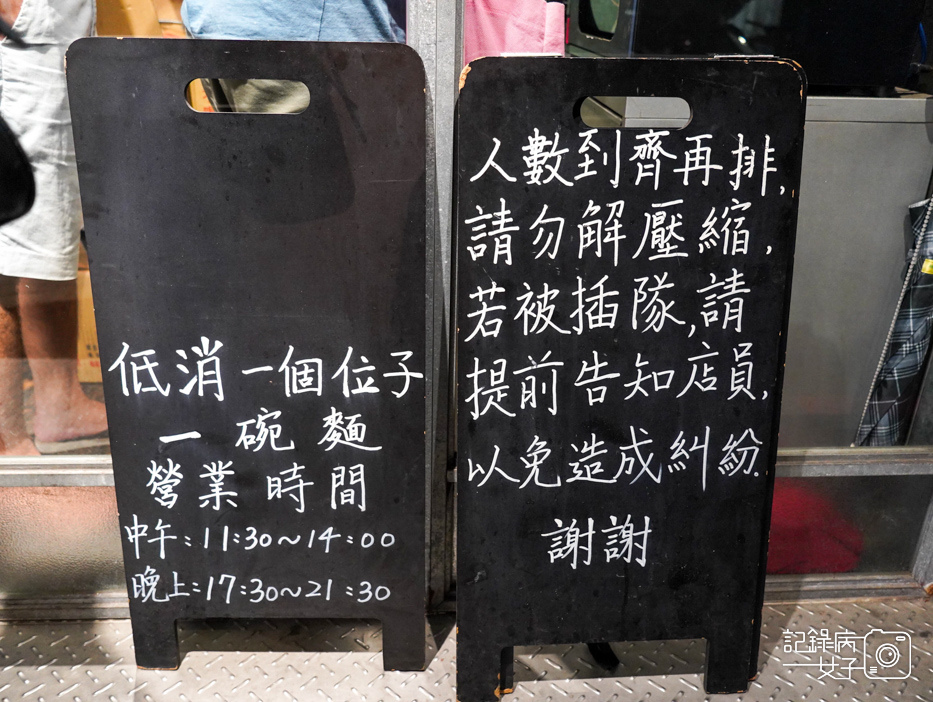 低消一個位子
一碗麵
營業時間
中午:11:30～14:00
晚上:17:30～21:30
人數到齊再排,
請勿解壓縮,
若被插隊,請
提前告知店員,
以免造成糾紛.
謝謝
記錄病
女子